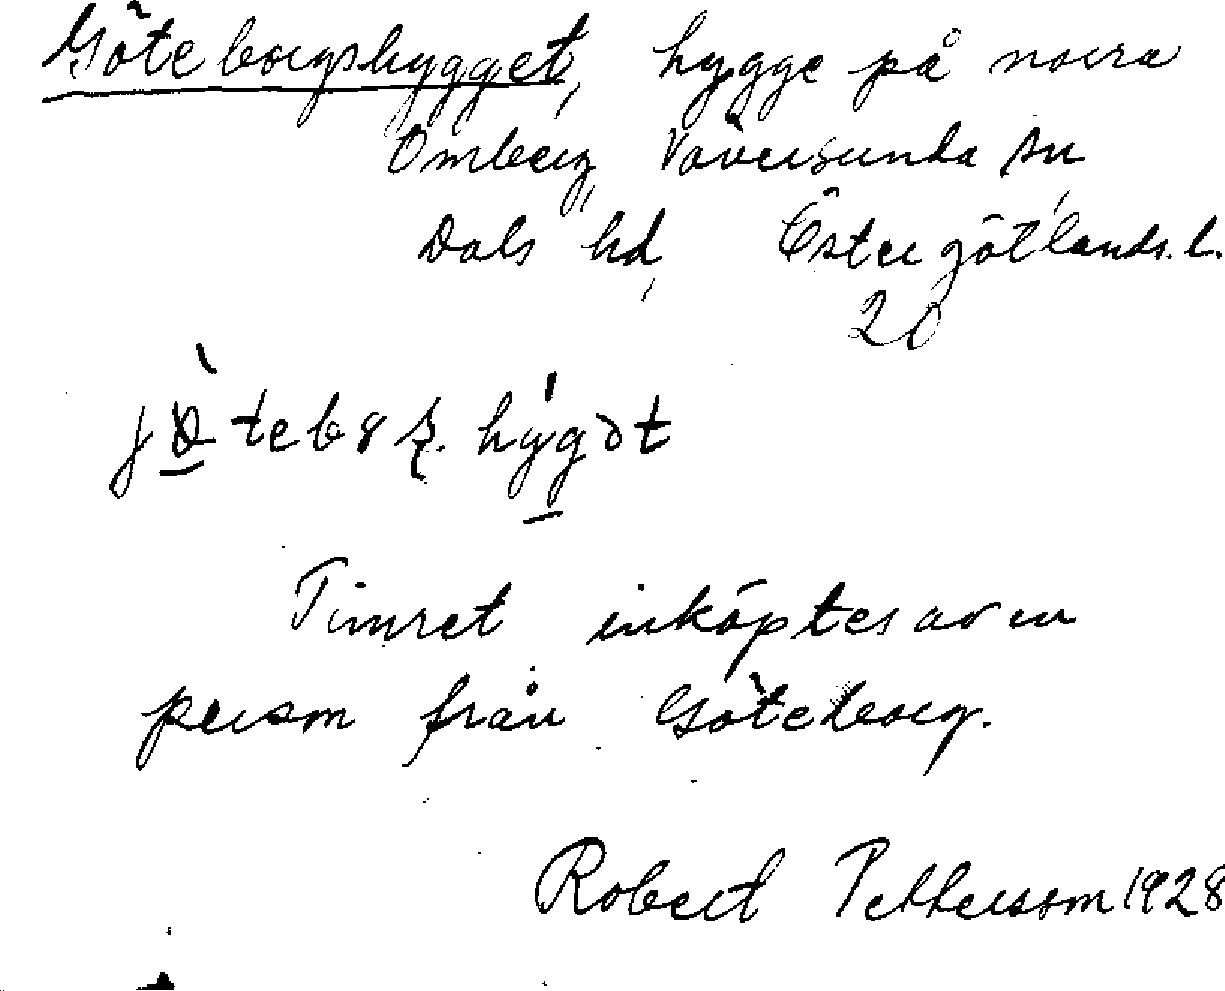 Göteborgshygget, hygge på norra
Omberg, Väversunda sn,
Dals hd, Östergötlands l.
20
Timret inköptes av en
person från Göteborg.
Robert Pettersson 1928